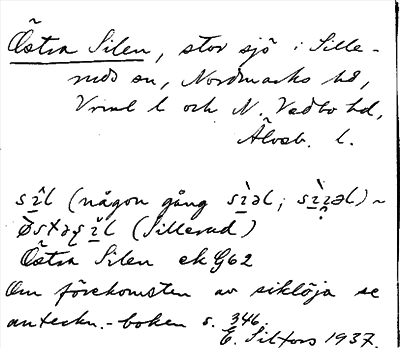 Östra Silen, stor sjö i Sille-
ruds sn, Nordmarks hd,
Vrml l och N. Vedbo hd,
Älvsb. l.
sîl (någon gång sìəl; sìəl) ~
sîl (Sillerud)
Östra Silen ek G62
Om förekomsten av siklöja se
anteckn.-boken s. 346.
E. Silfors 1937.